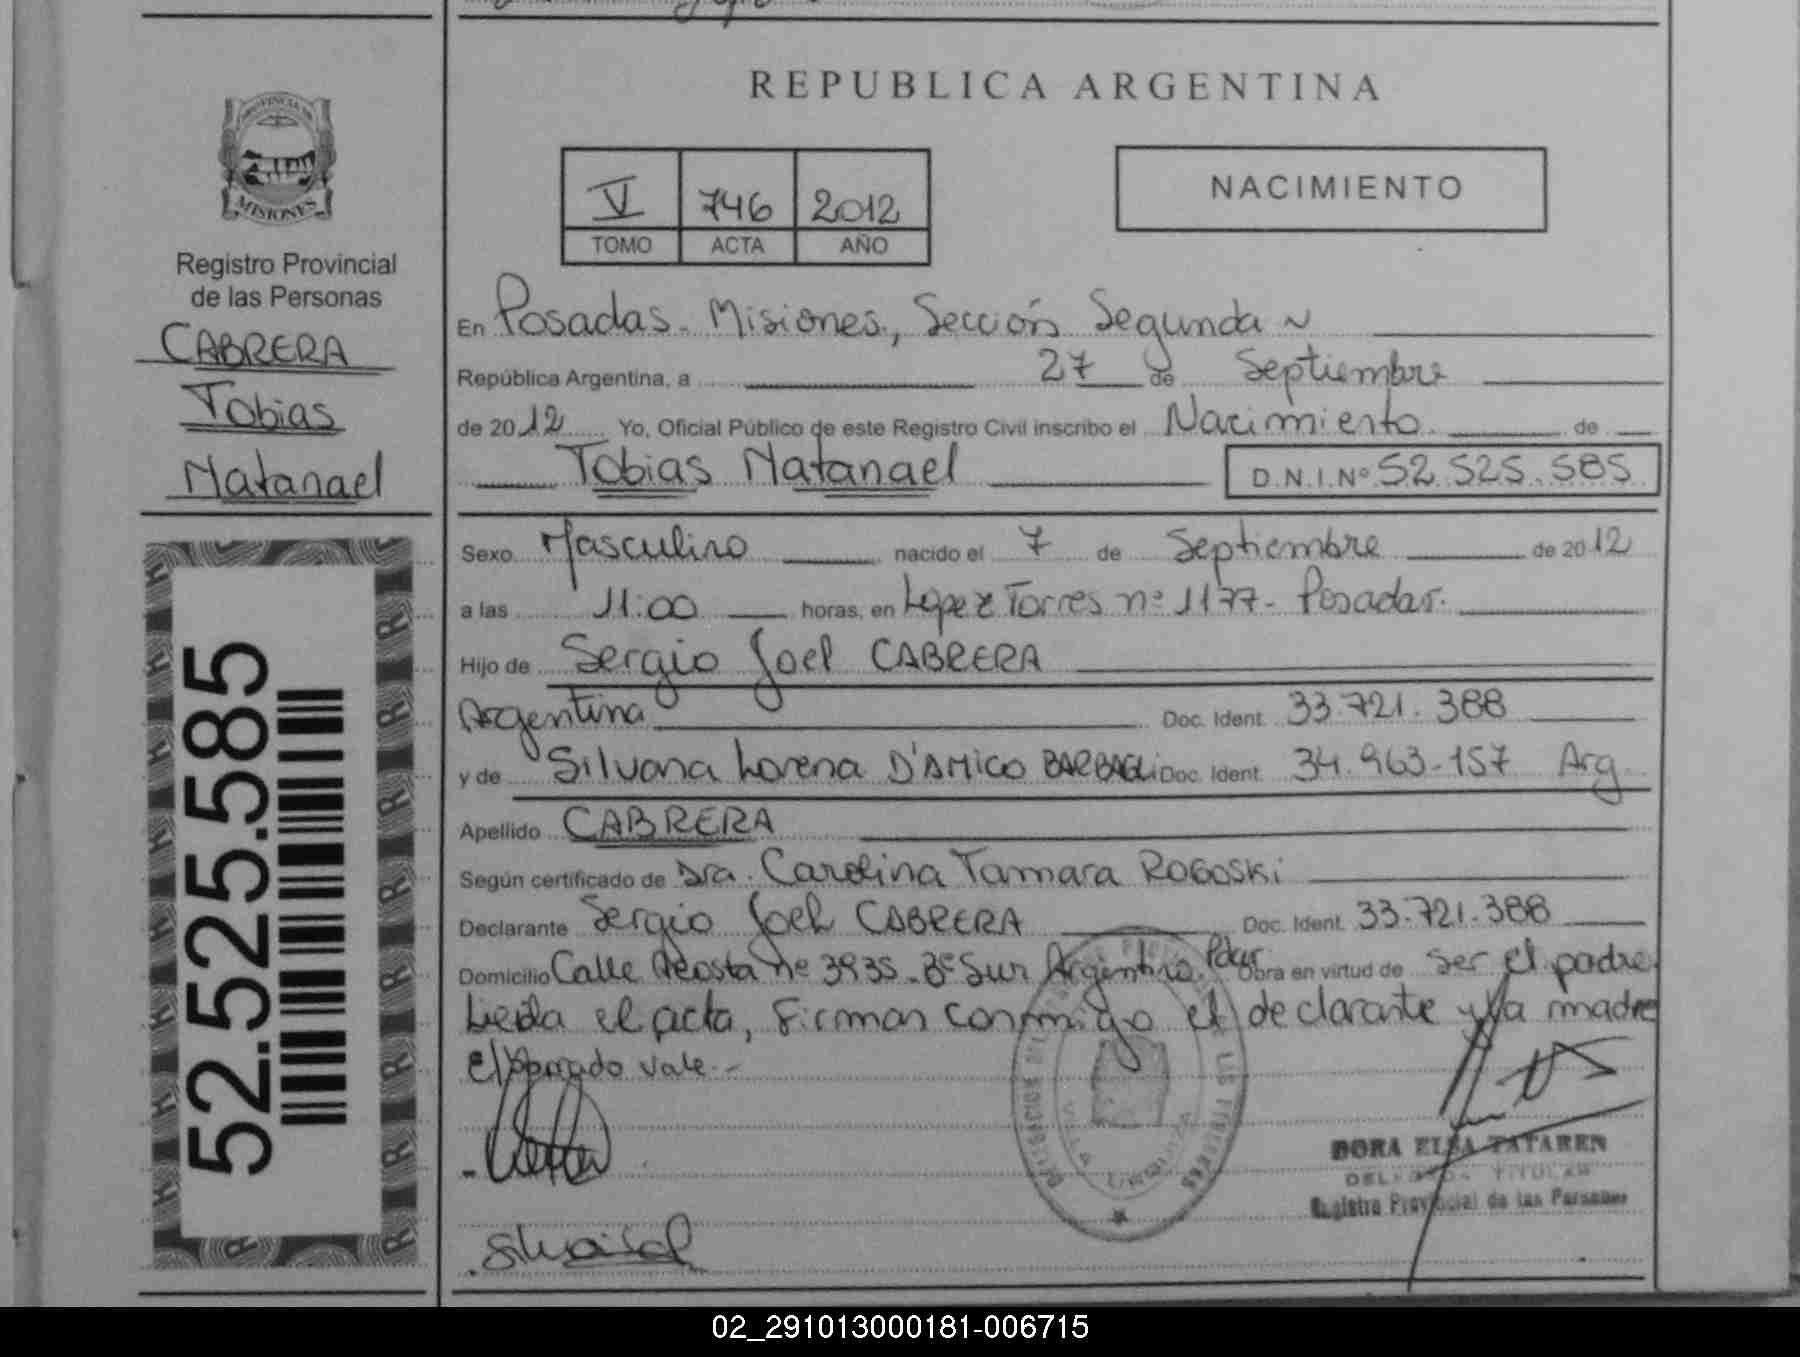 REPUBLICA ARGENTINA
PROVINCIA DE
MISIONES
Registro Provincial
de las Personas
CABRERA
Tobias
Natanael
52.525.585
V 746 2012
TOMO ACTA AÑO
NACIMIENTO
En Posadas. Misiones, Sección Segunda
República Argentina, a 27 de Septiembre
de 2012 Yo, Oficial Público de este Registro Civil inscribo el Nacimiento de
Tobias Natanael D.N.I.Nº 52.525.585
Sexo Masculino nacido el 7 de Septiembre de 2012
a las 11:00 horas, en Lopez Torres nº 1177- Posadas.
Hijo de Sergio Joel CABRERA
Argentina Doc. Ident. 33.721.388
y de Silvana Lorena D'AMICO BARBAGLI Doc. Ident. 34.963.157 Arg.
Apellido CABRERA
Según certificado de Dra. Carolina Tamara ROGOSKI
Declarante Sergio Joel CABRERA Doc. Ident. 33.721.388
Domicilio Calle Acosta nº 3935 - Bº Sur Argentino. Pdas. Obra en virtud de ser el padre.
Leida el acta, firman conmigo el declarante y la madre
El vale.-
VILLA URQUIZA
DORA ELSA TATAREN
DELEGADA TITULAR
Registro Provincial de las Personas
02_291013000181-006715